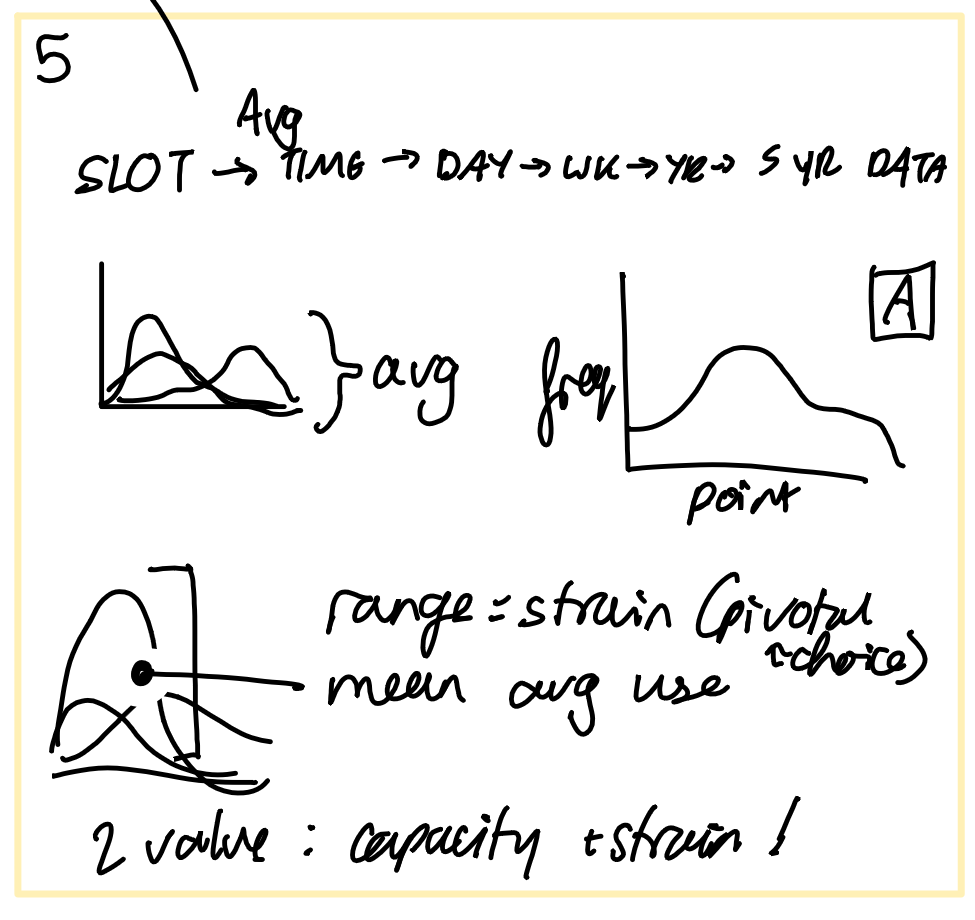 5
Avg
SLOT → TIME → DAY → WK → YR → 5 YR DATA
avg
A
freq
point
range = strain (pivotal
choice)
mean avg use
2 value : capacity + strain !